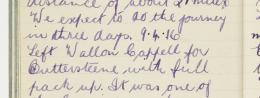 distance of about 21 miles
We expect to do the journey
in three days. 9.4.16
Left Wallon Cappell for
Buttersteene with full
pack up. It was one of